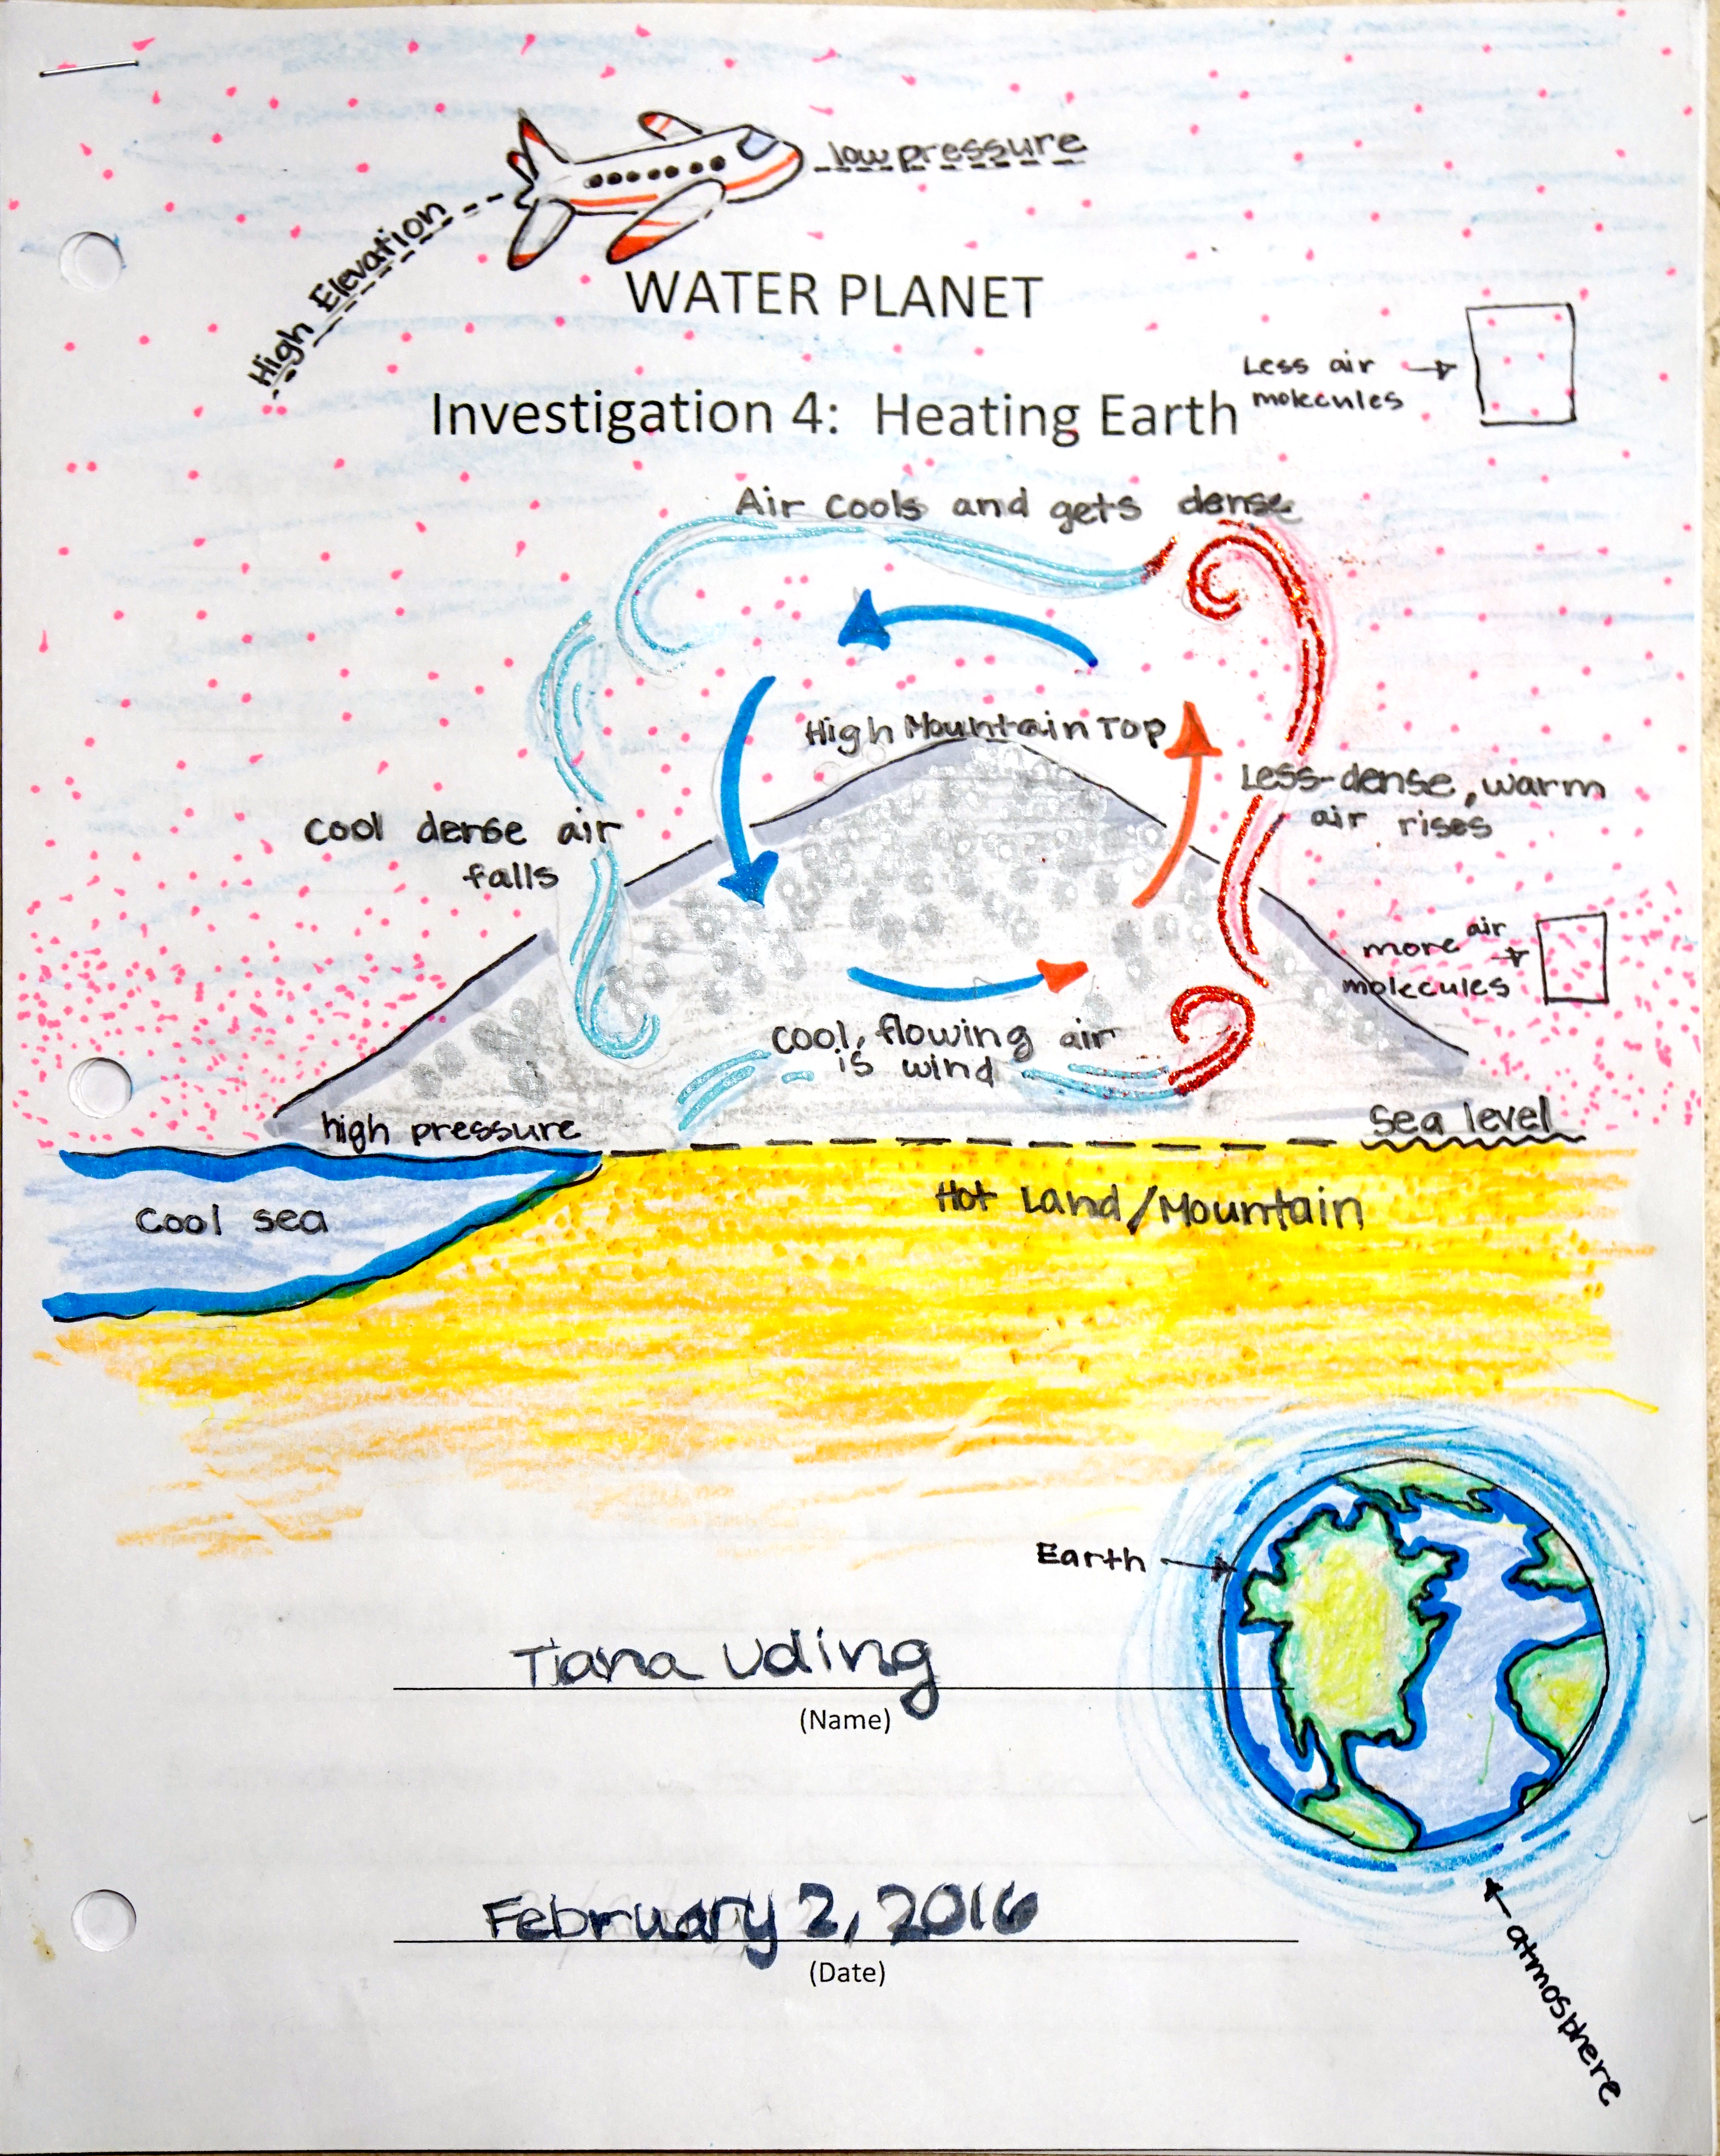 low pressure
High Elevation
WATER PLANET
Less air
molecules
Investigation 4: Heating Earth
Air cools and gets dense
High Mountain Top
Less-dense, warm
air rises
Cool dense air
falls
more air
molecules
Cool, flowing air
is wind
high pressure
Sea level
Cool sea
Hot Land/Mountain
Earth
Tiana Uding
(Name)
February 2, 2016
(Date)
atmosphere